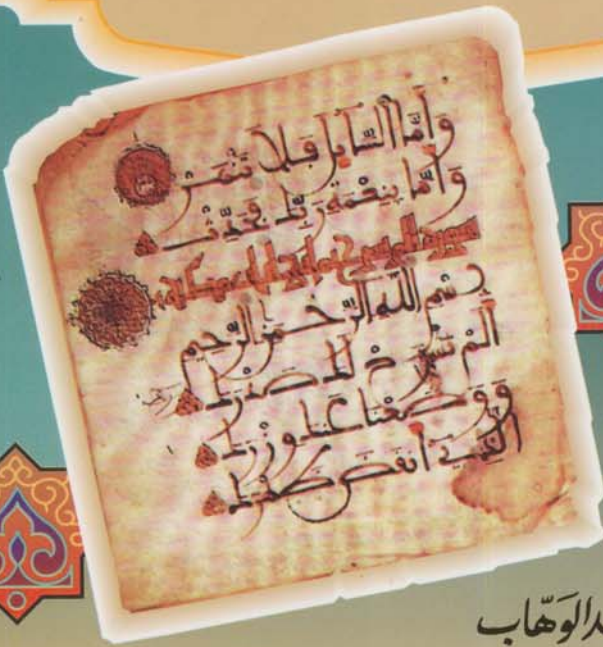 وَأَمَّا ٱلسَّآيِلَ فَلَا تَنْهَرْ
وَأَمَّا بِنِعْمَةِ رَبِّكَ فَحَدِّثْ
بِسْمِ اللَّهِ الرَّحْمَنِ الرَّحِيمِ
أَلَمْ نَشْرَحْ لَكَ صَدْرَكَ
وَوَضَعْنَا عَنكَ وِزْرَكَ
الَّذِي أَنقَضَ ظَهْرَكَ
دالوَهّاب